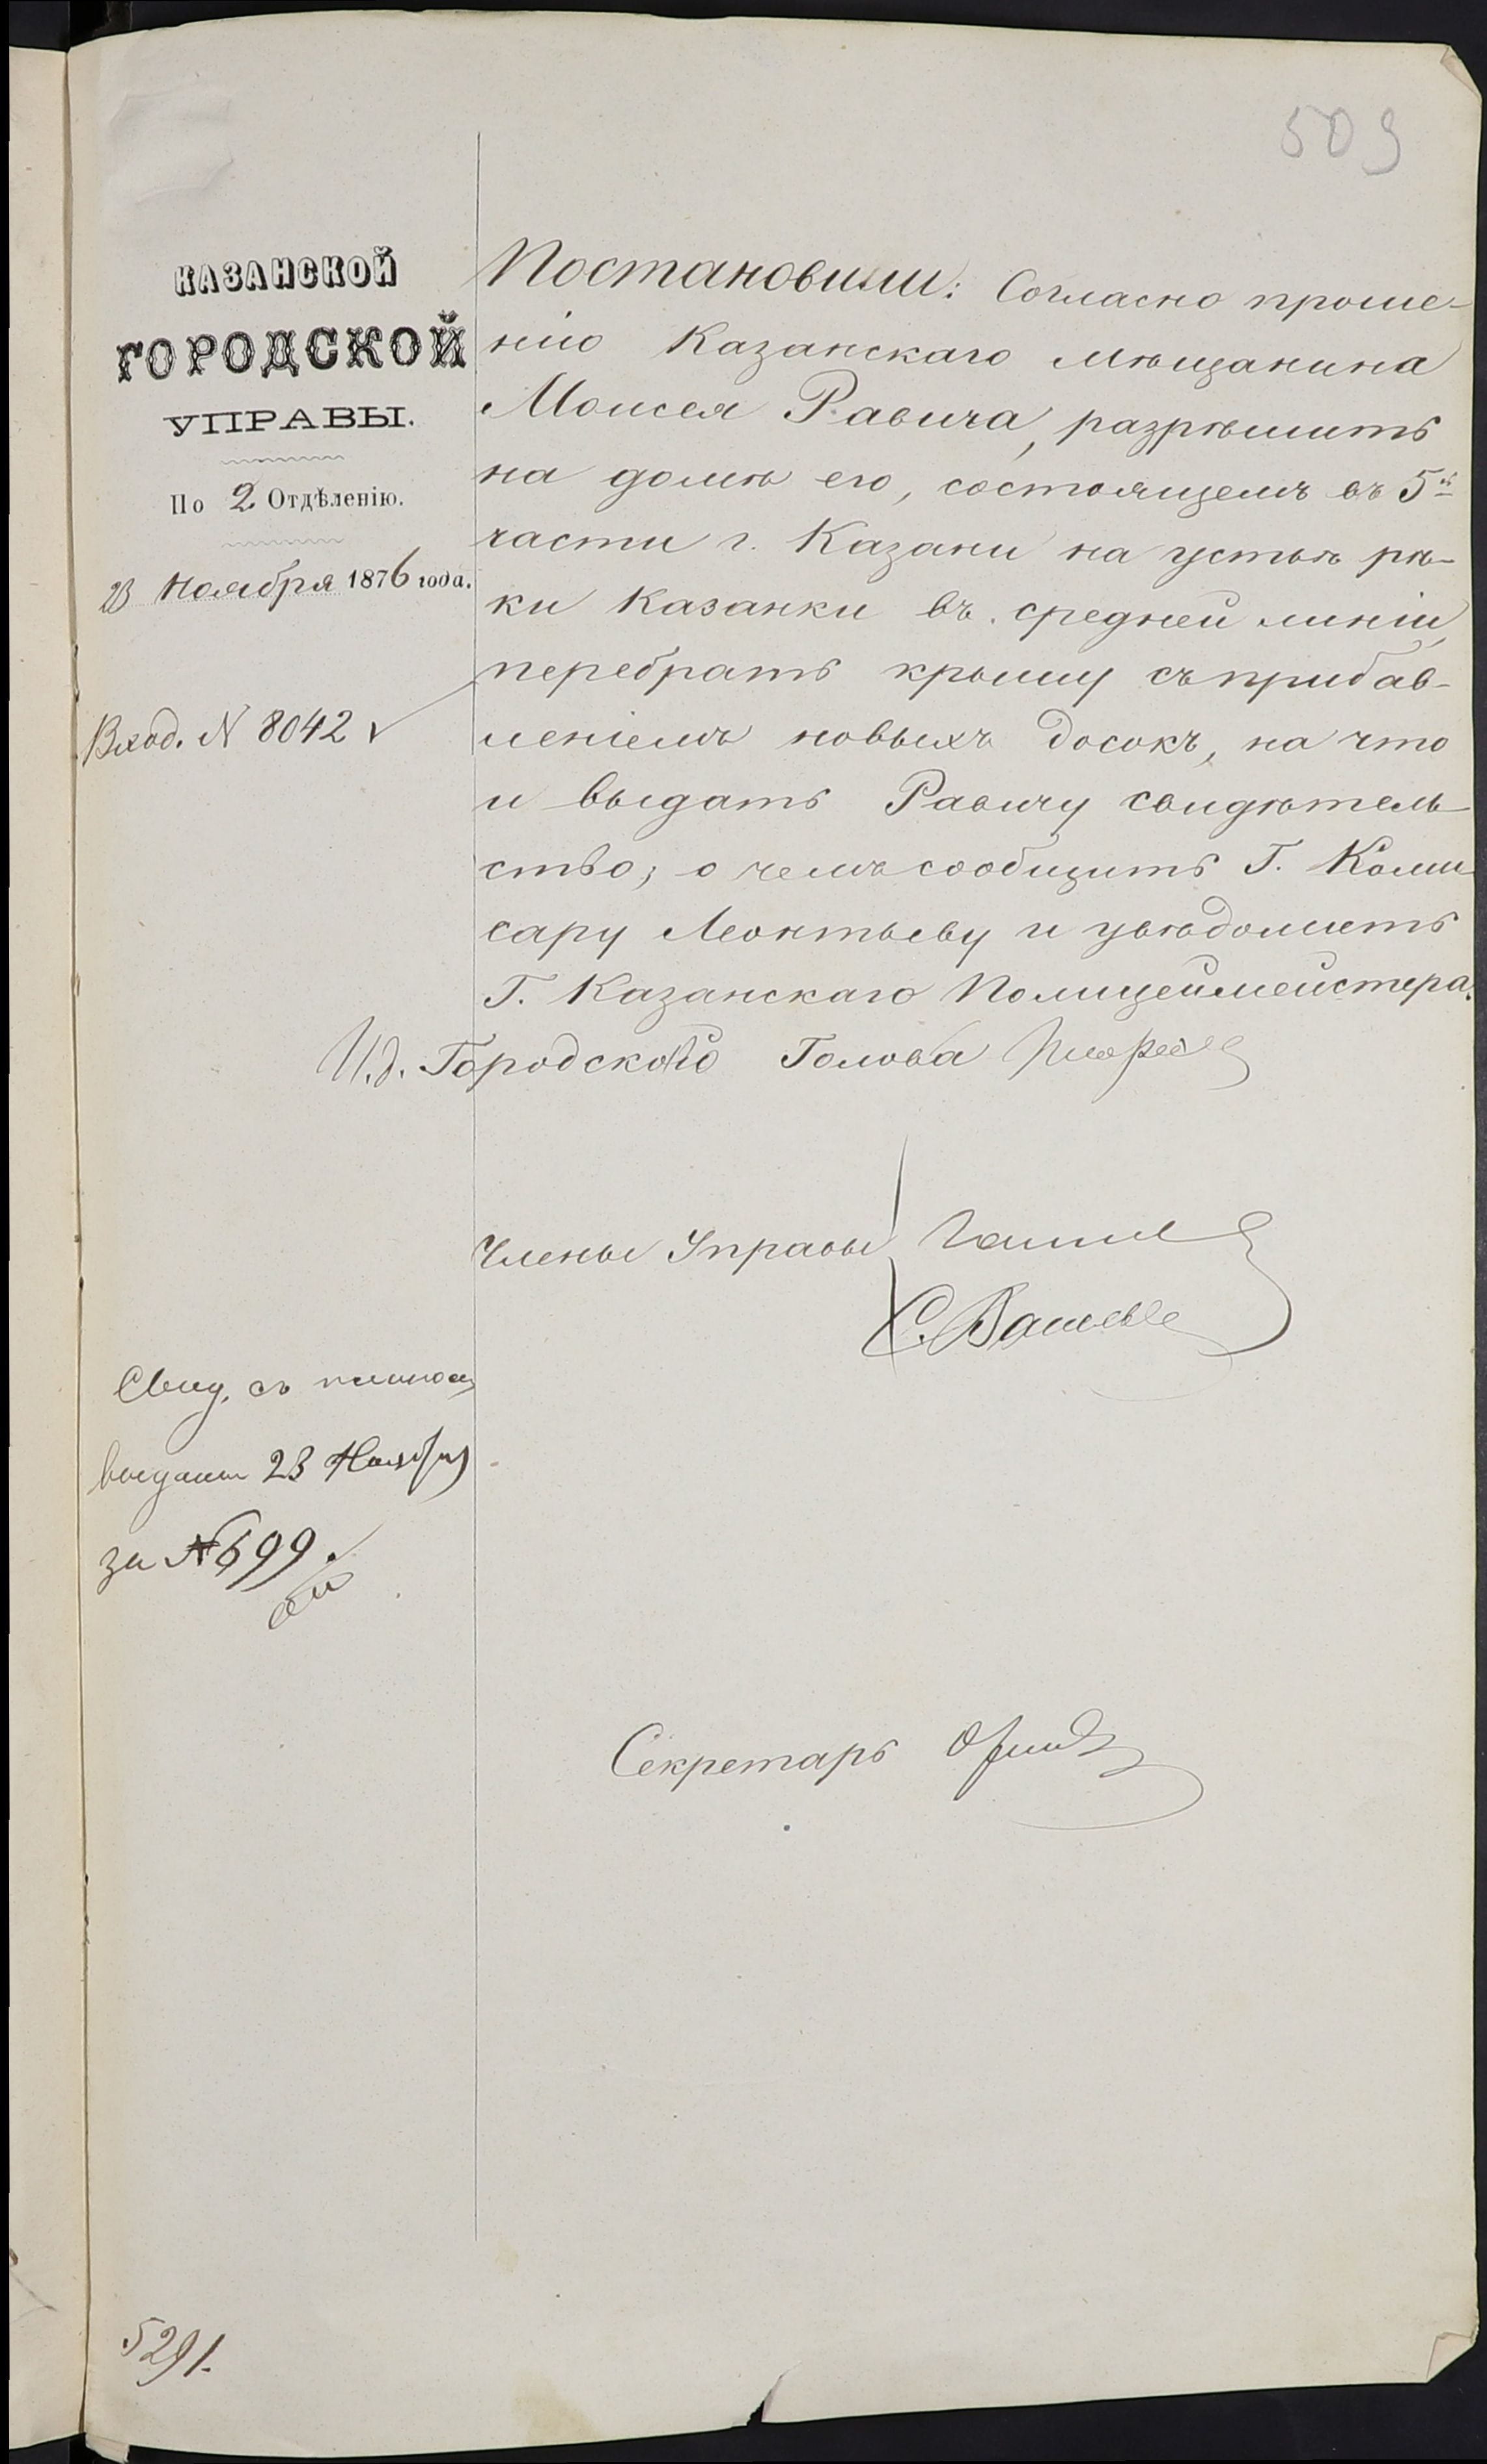 509
КАЗАНСКОЙ
ГОРОДСКОЙ
УПРАВЫ.
По 2 Отдѣленію.
23 Ноября 1876 года.
Вход. N 8042
Постановили: Согласно проше-
нію Казанскаго мѣщанина
Моисея Равича, разрѣшить
на домѣ его, состоящемъ въ 5й
части г. Казани на устьѣ рѣ-
ки Казанки въ средней линіи,
перебрать крышу съ прибав-
леніемъ новыхъ досокъ, на что
и выдать Равичу свидѣтель-
ство; о чемъ сообщить Г. Коми
сару Леонтьеву и увѣдомить
Г. Казанскаго Полицеймейстера.
И.д. Городского Голова
Члены Управы
С.
Свид. съ
выдано 23 Ноября
за № 699.
Секретарь
5291.